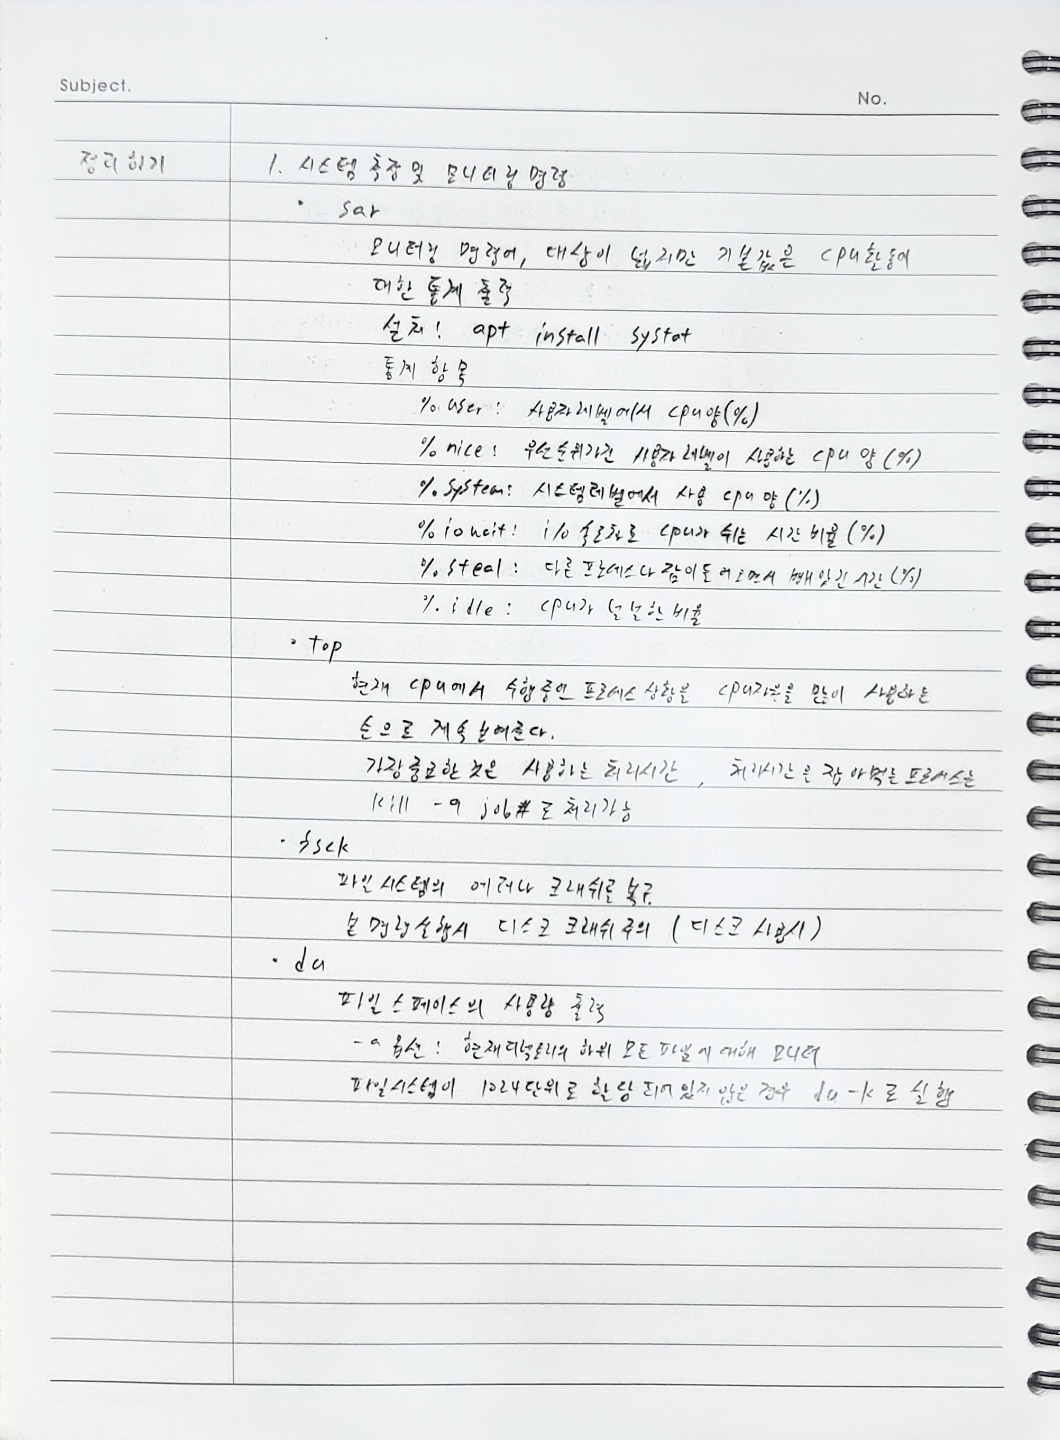 Subject.
No.
정리하기
1. 시스템 측정 및 모니터링 명령
· sar
모니터링 명령어, 대상이 넓지만 기본값은 cpu활동에
대한 통계 출력
설치! apt install systat
통계 항목
%user: 사용자레벨에서 cpu양(%)
%nice: 우선순위가진 사용자레벨이 사용하는 cpu 양 (%)
%.system: 시스템레벨에서 사용 cpu양(%)
%iowait: i/o cpu가 쉬는 시간 비율(%)
%.steal: 다른 프로세스나 뺏긴 시간(%)
%.idle: cpu가 널널한 비율
· top
현재 cpu에서 수행중인 프로세스 상황을 cpu자원을 많이 사용하는
순으로 계속 보여준다.
가장중요한 것은 사용하는 처리시간, 처리시간은 잡아먹는 프로세스는
kill -9 job#로 처리가능
· fsck
파일시스템의 에러나 크래쉬를 복구.
본 명령실행시 디스크 크래쉬 주의 (디스크 사용시)
· du
파일 스페이스의 사용량 출력
-a 옵션: 현재디렉토리의 하위 모든 파일에 대해 모니터
파일시스템이 1024단위로 할당 되어 있지 않은 경우 du -k로 실행